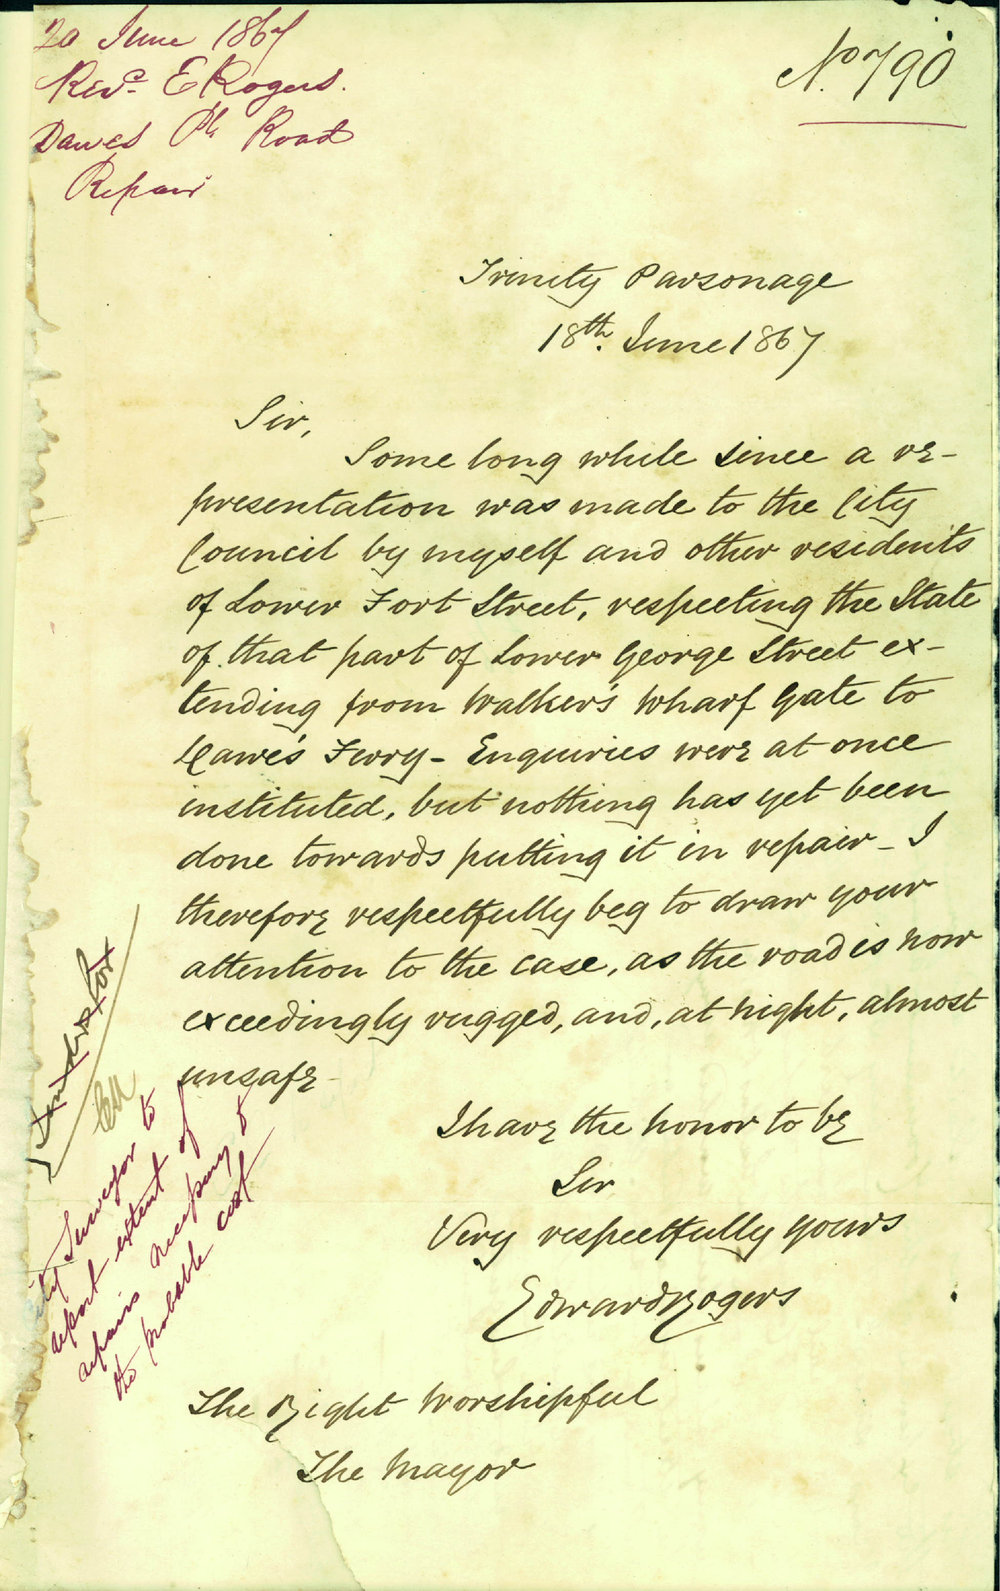 20 June 1867
Revd. E Rogers.
Dawes Pt Road
Repair
No. 790
Trinity Parsonage
18th. June 1867
Sir,
Some long while since a re-
presentation was made to the City
Council by myself and other residents
of Lower Fort Street, respecting the State
of that part of Lower George Street ex-
tending from Walker's Wharf Gate to
Ferry - Enquiries were at once
instituted, but nothing has yet been
done towards putting it in repair - I
therefore respectfully beg to draw your
attention to the case, as the road is now
exceedingly rugged, and, at night, almost
unsafe -
I have the honor to be
Sir
Very respectfully yours
Edward Rogers
The Right Worshipful
The Mayor
City Surveyor to
report extent of
repairs necessary &
the probable cost